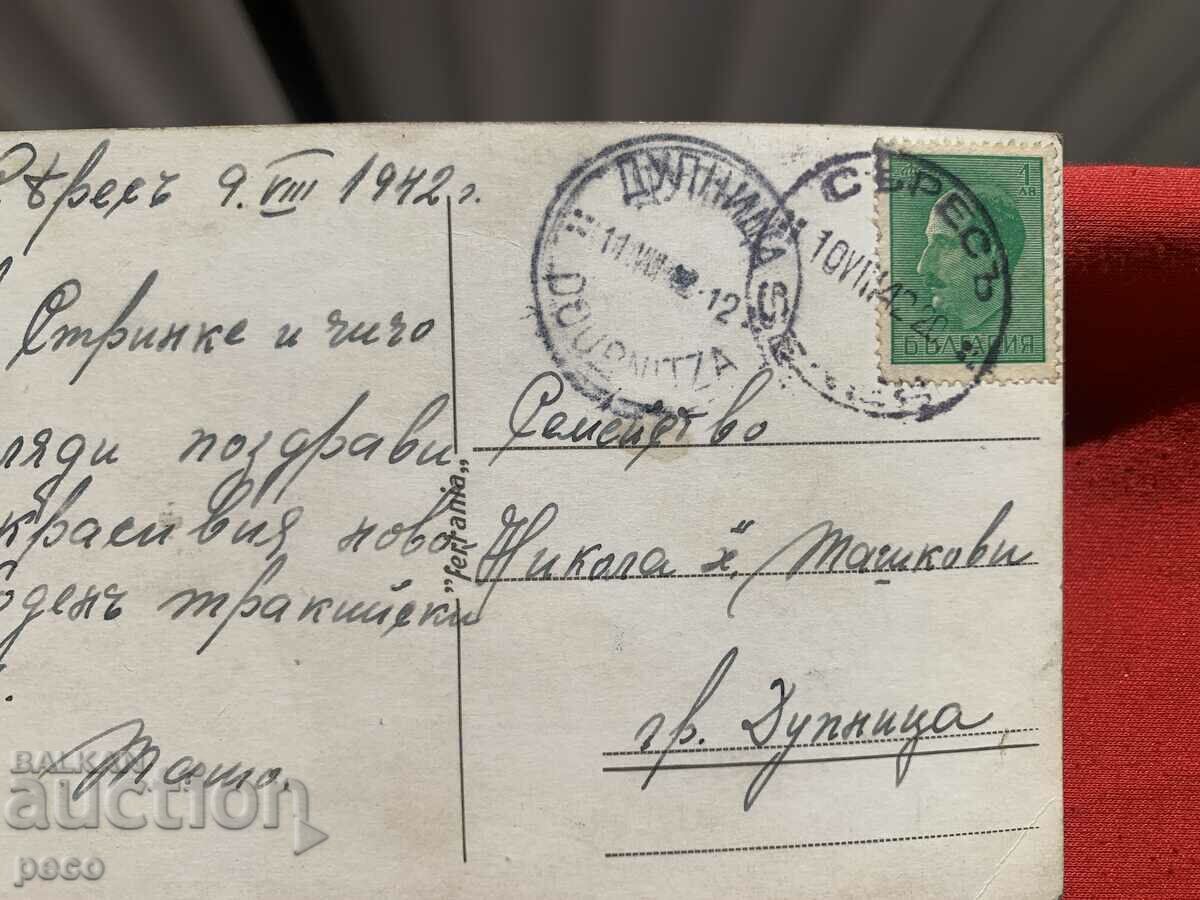 Сѣресъ 9. VIII 1942 г.
Стринке и чичо
поздрави
красивия ново
тракийски
Ташо.
"ferrania"
ДУПНИЦА
DUPNITZA
СЕРЕСЪ
10 VIII 42 20
1 ЛВ
БЪЛГАРИЯ
Семейство
Никола х. Ташкови
гр. Дупница
BALKAN
auction
peco